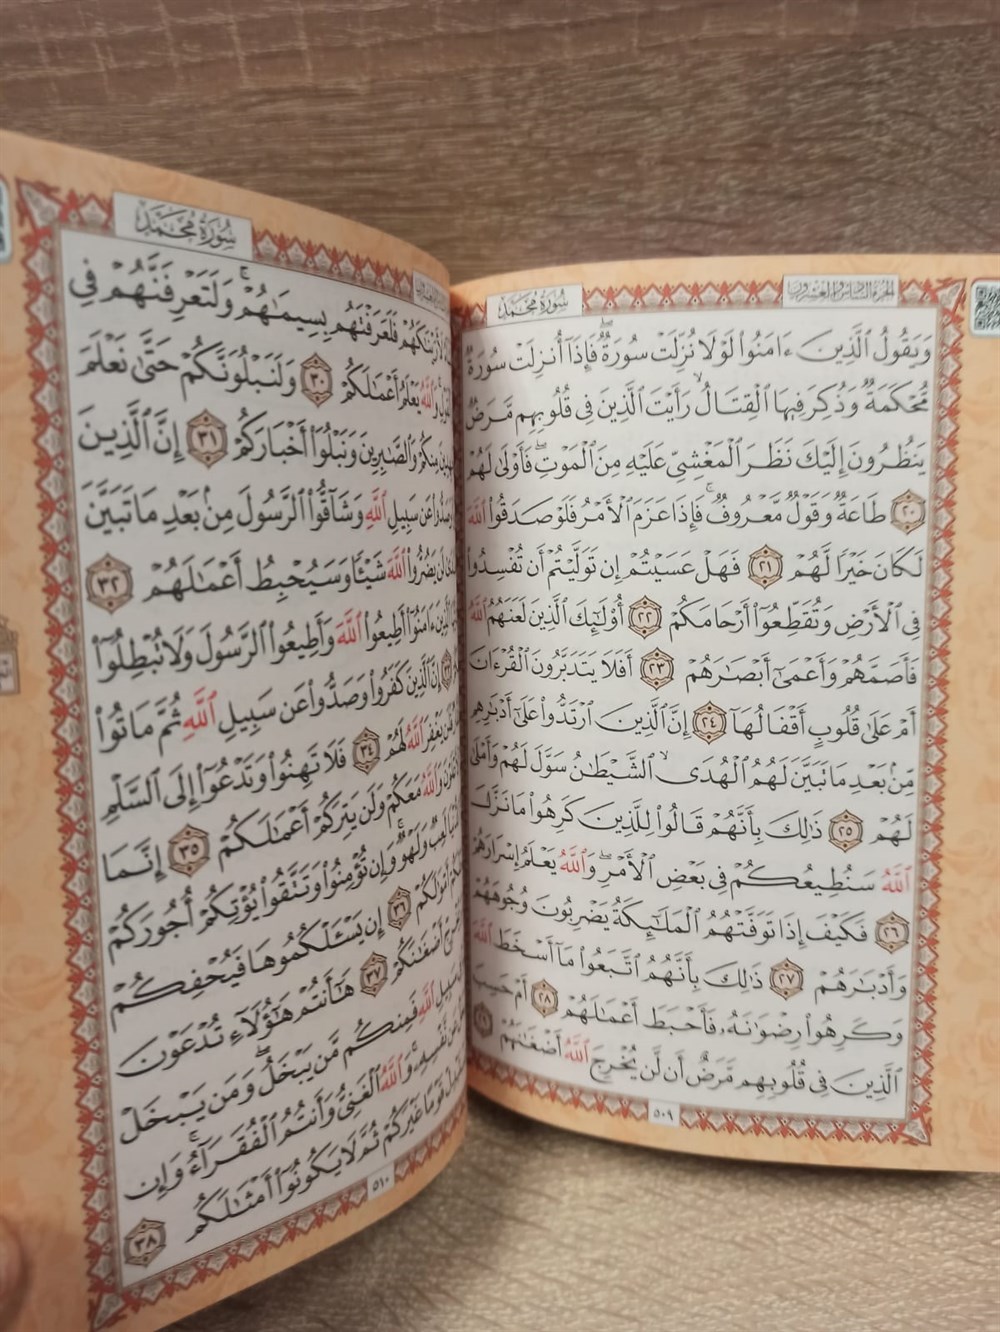 سُورَةُ مُحَمَّد
الجزء السادس والعشرون
وَيَقُولُ الَّذِينَ ءَامَنُوا۟ لَوْلَا نُزِّلَتْ سُورَةٌ ۖ فَإِذَآ أُنزِلَتْ سُورَةٌ
مُّحْكَمَةٌ وَذُكِرَ فِيهَا الْقِتَالُ ۙ رَأَيْتَ الَّذِينَ فِى قُلُوبِهِم مَّرَضٌ
يَنظُرُونَ إِلَيْكَ نَظَرَ الْمَغْشِىِّ عَلَيْهِ مِنَ الْمَوْتِ ۖ فَأَوْلَىٰ لَهُمْ
٢٠ طَاعَةٌ وَقَوْلٌ مَّعْرُوفٌ ۚ فَإِذَا عَزَمَ الْأَمْرُ فَلَوْ صَدَقُوا۟ اللَّهَ
لَكَانَ خَيْرًا لَّهُمْ ٢١ فَهَلْ عَسَيْتُمْ إِن تَوَلَّيْتُمْ أَن تُفْسِدُوا۟
فِى الْأَرْضِ وَتُقَطِّعُوٓا۟ أَرْحَامَكُمْ ٢٢ أُو۟لَٰٓئِكَ الَّذِينَ لَعَنَهُمُ اللَّهُ
فَأَصَمَّهُمْ وَأَعْمَىٰٓ أَبْصَٰرَهُمْ ٢٣ أَفَلَا يَتَدَبَّرُونَ الْقُرْءَانَ
أَمْ عَلَىٰ قُلُوبٍ أَقْفَالُهَآ ٢٤ إِنَّ الَّذِينَ ارْتَدُّوا۟ عَلَىٰٓ أَدْبَٰرِهِم
مِّنۢ بَعْدِ مَا تَبَيَّنَ لَهُمُ الْهُدَى ۙ الشَّيْطَٰنُ سَوَّلَ لَهُمْ وَأَمْلَىٰ
لَهُمْ ٢٥ ذَٰلِكَ بِأَنَّهُمْ قَالُوا۟ لِلَّذِينَ كَرِهُوا۟ مَا نَزَّلَ
اللَّهُ سَنُطِيعُكُمْ فِى بَعْضِ الْأَمْرِ ۖ وَاللَّهُ يَعْلَمُ إِسْرَارَهُمْ
٢٦ فَكَيْفَ إِذَا تَوَفَّتْهُمُ الْمَلَٰٓئِكَةُ يَضْرِبُونَ وُجُوهَهُمْ
وَأَدْبَٰرَهُمْ ٢٧ ذَٰلِكَ بِأَنَّهُمُ اتَّبَعُوا۟ مَآ أَسْخَطَ اللَّهَ
وَكَرِهُوا۟ رِضْوَٰنَهُۥ فَأَحْبَطَ أَعْمَٰلَهُمْ ٢٨ أَمْ حَسِبَ
الَّذِينَ فِى قُلُوبِهِم مَّرَضٌ أَن لَّن يُخْرِجَ اللَّهُ أَضْغَٰنَهُمْ ٢٩
٥٠٩
سُورَةُ مُحَمَّد
لَأَرَيْنَٰكَهُمْ فَلَعَرَفْتَهُم بِسِيمَٰهُمْ ۚ وَلَتَعْرِفَنَّهُمْ فِى
وَاللَّهُ يَعْلَمُ أَعْمَٰلَكُمْ ٣٠ وَلَنَبْلُوَنَّكُمْ حَتَّىٰ نَعْلَمَ
مِنكُمْ وَالصَّٰبِرِينَ وَنَبْلُوَا۟ أَخْبَارَكُمْ ٣١ إِنَّ الَّذِينَ
وَصَدُّوا۟ عَن سَبِيلِ اللَّهِ وَشَآقُّوا۟ الرَّسُولَ مِنۢ بَعْدِ مَا تَبَيَّنَ
لَن يَضُرُّوا۟ اللَّهَ شَيْـًٔا وَسَيُحْبِطُ أَعْمَٰلَهُمْ ٣٢
الَّذِينَ ءَامَنُوٓا۟ أَطِيعُوا۟ اللَّهَ وَأَطِيعُوا۟ الرَّسُولَ وَلَا تُبْطِلُوٓا۟
إِنَّ الَّذِينَ كَفَرُوا۟ وَصَدُّوا۟ عَن سَبِيلِ اللَّهِ ثُمَّ مَاتُوا۟
فَلَن يَغْفِرَ اللَّهُ لَهُمْ ٣٤ فَلَا تَهِنُوا۟ وَتَدْعُوٓا۟ إِلَى السَّلْمِ
وَاللَّهُ مَعَكُمْ وَلَن يَتِرَكُمْ أَعْمَٰلَكُمْ ٣٥ إِنَّمَا
لَعِبٌ وَلَهْوٌ ۚ وَإِن تُؤْمِنُوا۟ وَتَتَّقُوا۟ يُؤْتِكُمْ أُجُورَكُمْ
أَمْوَٰلَكُمْ ٣٦ إِن يَسْـَٔلْكُمُوهَا فَيُحْفِكُمْ
أَضْغَٰنَكُمْ ٣٧ هَٰٓأَنتُمْ هَٰٓؤُلَآءِ تُدْعَوْنَ
سَبِيلِ اللَّهِ فَمِنكُم مَّن يَبْخَلُ ۖ وَمَن يَبْخَلْ
عَن نَّفْسِهِۦ ۚ وَاللَّهُ الْغَنِىُّ وَأَنتُمُ الْفُقَرَآءُ ۚ وَإِن
قَوْمًا غَيْرَكُمْ ثُمَّ لَا يَكُونُوٓا۟ أَمْثَٰلَكُم ٣٨
٥١٠